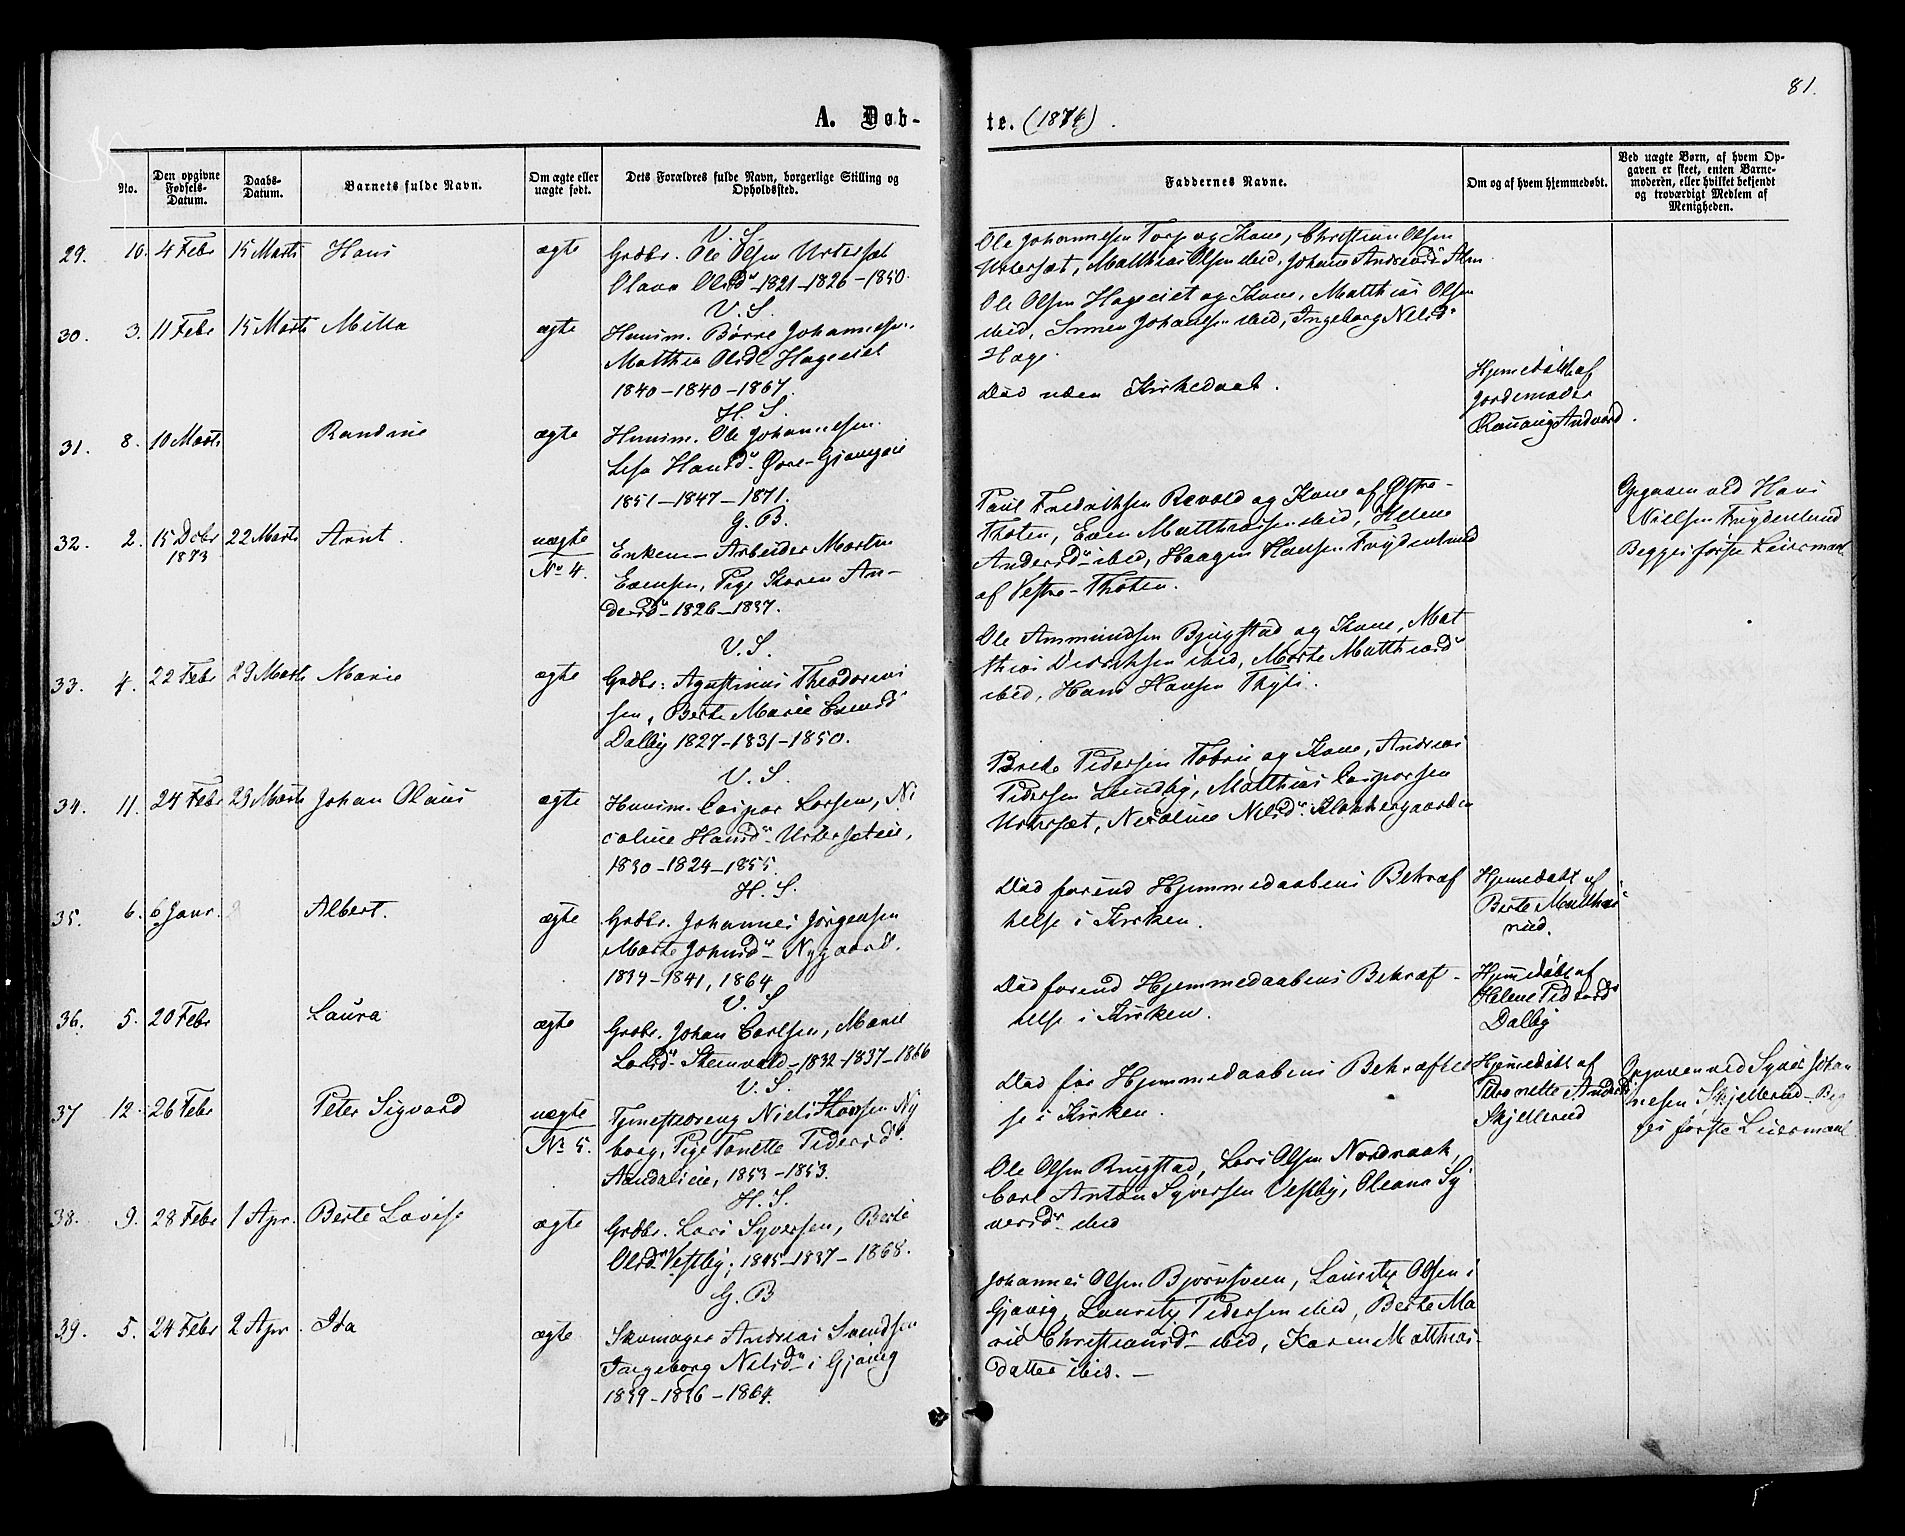 81.
A. Døb-
te. (1874).
No.
Den opgivne Fødsels-Datum.
Daabs-Datum.
Barnets fulde Navn.
Om ægte eller uægte født.
Dets Forældres fulde Navn, borgerlige Stilling og Opholdssted.
Faddernes Navne.
Om og af hvem hjemmedøbt.
Ved uægte Børn, af hvem Op-
gaven er skeet, enten Barne-
moderen, eller hvilket bekjendt
og troværdigt Medlem af
Menigheden.
V. S.
29. 10. 4 Febr 15 Marts Hans ægte Grdbr. Ole Olsen Urtersæt
Olava Olsd. 1821-1826-1850.
Ole Johannesen Torp og Kone, Christian Olsen
Urtersæt, Matthias Olsen ibid, Johane Andersd.
V. S.
30. 3. 11 Febr 15 Marts Milla ægte Husm. Børre Johannesen.
Matthea Olsd. Hageeiet
1840-1840-1867.
Ole Olsen Hageeiet og Kone, Matthias Olsen
ibid, Simen Johansen ibid, Ingeborg Nilsd.
Hage.
H. S.
31. 8. 10 Marts Randine ægte Husm. Ole Johannesen.
Lisa Hansd. Øvre-
1851-1847-1871.
Død uden Kirkedaab.
Hjemedøbt af
Jordemoder
G. B.
32. 2. 15 Dcbr 1873 22 Marts Arnt. uægte No 4. Enkem.- Arbeider Morten
Evensen, Pige Karen An-
dersd. 1826-1837.
Paul Fredriksen Revold og Kone af Østre-
Thoten, Even Matthiassen ibid, Helene
Andersd. ibid, Haagen Hansen Frydenlund
af Vestre-Thoten.
Opgaven ved Hans
Nielsen Frydenlund
Begges første Leiermaal
V. S.
33. 4. 22 Febr 29 Marts Marie ægte Grdbr. Agustinus Theodorus
sen, Berte Marie Evensd
Dalby 1827-1831-1850.
Ole Ammundsen Bjugstad og Kone, Mat
thias Didriksen ibid, Marte Matthiasd.
ibid, Hans Hansen
V. S.
34. 11. 24 Febr 29 Marts Johan Olaus ægte Husm. Casper Larsen, Ni
coline Hansd. Urtersæteie,
1830-1824-1855.
Pedersen og Kone, Andreas
Pedersen Lundby, Matthias Caspersen
Urtersæt, Nicoline Nilsd. Klokkergaarden
H. S.
35. 6. 6 Janr. Albert. ægte Grdbr. Johannes Jørgensen
Marte Johnsd. Nygaard.
1839-1841, 1864
Død forend Hjemmedaabens Bekræf
telse i Kirken.
Hjemedøbt af
Berte Matthias
rud.
V. S
36. 5. 20 Febr Laura ægte Grdbr. Johan Carlsen, Marie
Larsd. Steinvold-1832-1837-1866
Død forend Hjemmedaabens Bekræf-
telse i Kirken.
Hjemedøbt af
Helene Pedersd.
Dalby
V. S.
37 12. 26 Febr Peter Sigvard uægte No 5. Tjenestedreng Niels Hansen Ny
borg, Pige Tonette Pedersd.
1853-1853.
Død før Hjemmedaabens Bekræftel
se i Kirken.
Hjemedøbt af
Petronette Andersd
Skjellerud
Opgaven ved Syver Johan
nesen Skjellerud-Beg
ges første Leiermaal
H. S.
38. 9. 28 Febr 1 Apr. Berte Lovise ægte Grdbr. Lars Syversen, Berte
Olsd. Vestby, 1845-1837-1868.
Ole Olsen Rugstad, Lars Olsen Nordraak,
Carl Anton Syversen Vestby, Oleana Sy
versd. ibid
G. B
39. 5. 24 Febr 2 Apr. Ida ægte Skomager Andreas Svendsen
Ingeborg Nilsd. i Gjøvig
1839-1836-1864.
Johannes Olsen Bjørnsveen, Lauritz Olsen i
Gjøvig, Lauritz Pedersen ibid, Berte Ma
rie Christiansd. ibid, Karen Matthias-
datter ibid.